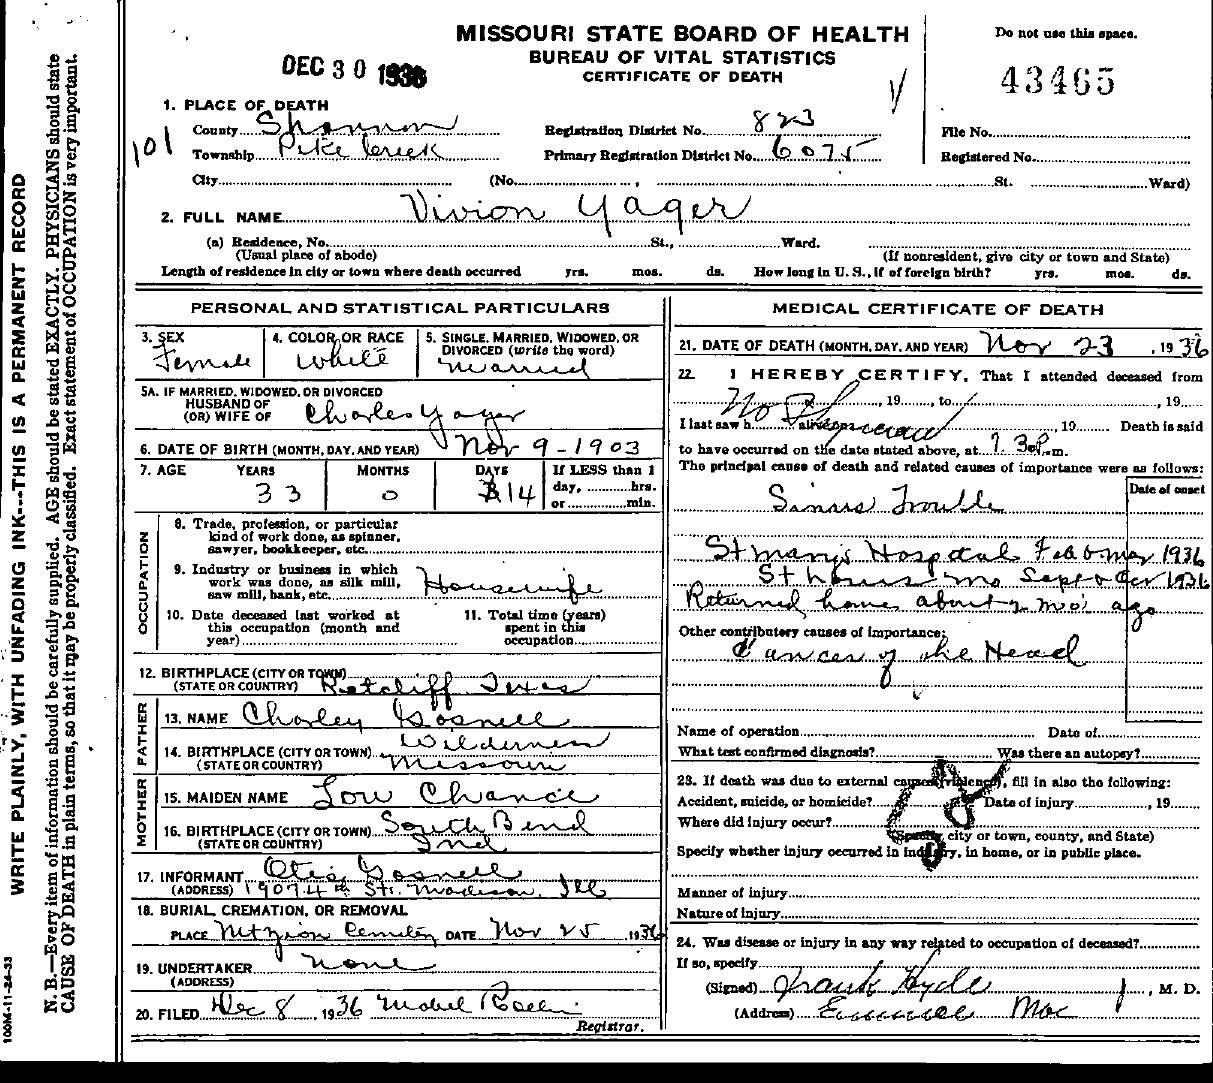 MISSOURI STATE BOARD OF HEALTH
BUREAU OF VITAL STATISTICS
CERTIFICATE OF DEATH
Do not use this space.
DEC 30 1936
43465
1. PLACE OF DEATH
County Shannon Registration District No. 823 File No.
101
Township Pike Creek Primary Registration District No. 6075 Registered No.
City (No. , St. Ward)
2. FULL NAME Vivion Yager
(a) Residence, No. St., Ward.
(Usual place of abode) (If nonresident, give city or town and State)
Length of residence in city or town where death occurred yrs. mos. ds. How long in U. S., if of foreign birth? yrs. mos. ds.
PERSONAL AND STATISTICAL PARTICULARS
3. SEX Female
4. COLOR OR RACE White
5. SINGLE, MARRIED, WIDOWED, OR DIVORCED (write the word) Married
5A. IF MARRIED, WIDOWED, OR DIVORCED
HUSBAND OF
(OR) WIFE OF Charles Yager
6. DATE OF BIRTH (MONTH, DAY, AND YEAR) Nov 9-1903
7. AGE YEARS MONTHS DAYS If LESS than 1
33 0 14 day, hrs.
or min.
OCCUPATION
8. Trade, profession, or particular
kind of work done, as spinner,
sawyer, bookkeeper, etc.
9. Industry or business in which
work was done, as silk mill,
saw mill, bank, etc. Housewife
10. Date deceased last worked at
this occupation (month and
year)
11. Total time (years)
spent in this
occupation
12. BIRTHPLACE (CITY OR TOWN)
(STATE OR COUNTRY) Ratcliff Texas
FATHER
13. NAME Charley Gosnell
14. BIRTHPLACE (CITY OR TOWN) Wilderness
(STATE OR COUNTRY) Missouri
MOTHER
15. MAIDEN NAME Lou Chance
16. BIRTHPLACE (CITY OR TOWN) South Bend
(STATE OR COUNTRY) Ind
17. INFORMANT Otis Gosnell
(ADDRESS) 1907 4th St. Madison, Ill
18. BURIAL, CREMATION, OR REMOVAL
PLACE Mt Zion Cemetery DATE Nov 25 1936
19. UNDERTAKER none
(ADDRESS)
20. FILED Dec 8, 1936 Mabel
Registrar.
MEDICAL CERTIFICATE OF DEATH
21. DATE OF DEATH (MONTH, DAY, AND YEAR) Nov 23, 1936
22. I HEREBY CERTIFY, That I attended deceased from
No , 19 , to , 19
I last saw h alive 19 Death is said
to have occurred on the date stated above, at 1.30P.m.
The principal cause of death and related causes of importance were as follows:
Date of onset
Sinus Trouble
St Mary's Hospital Feb to Mar 1936
St Louis Mo Sept Oct 1936
Returned home about 2 mo's ago
Other contributory causes of importance:
Cancer of the Head
Name of operation Date of
What test confirmed diagnosis? Was there an autopsy?
23. If death was due to external causes (violence), fill in also the following:
Accident, suicide, or homicide? Date of injury , 19
Where did injury occur?
(Specify city or town, county, and State)
Specify whether injury occurred in industry, in home, or in public place.
Manner of injury
Nature of injury
24. Was disease or injury in any way related to occupation of deceased?
If so, specify
(Signed) Frank Hyde , M. D.
(Address) Eminence Mo
WRITE PLAINLY, WITH UNFADING INK---THIS IS A PERMANENT RECORD
N. B.—Every item of information should be carefully supplied. AGE should be stated EXACTLY. PHYSICIANS should state
CAUSE OF DEATH in plain terms, so that it may be properly classified. Exact statement of OCCUPATION is very important.
100M-11-24-33